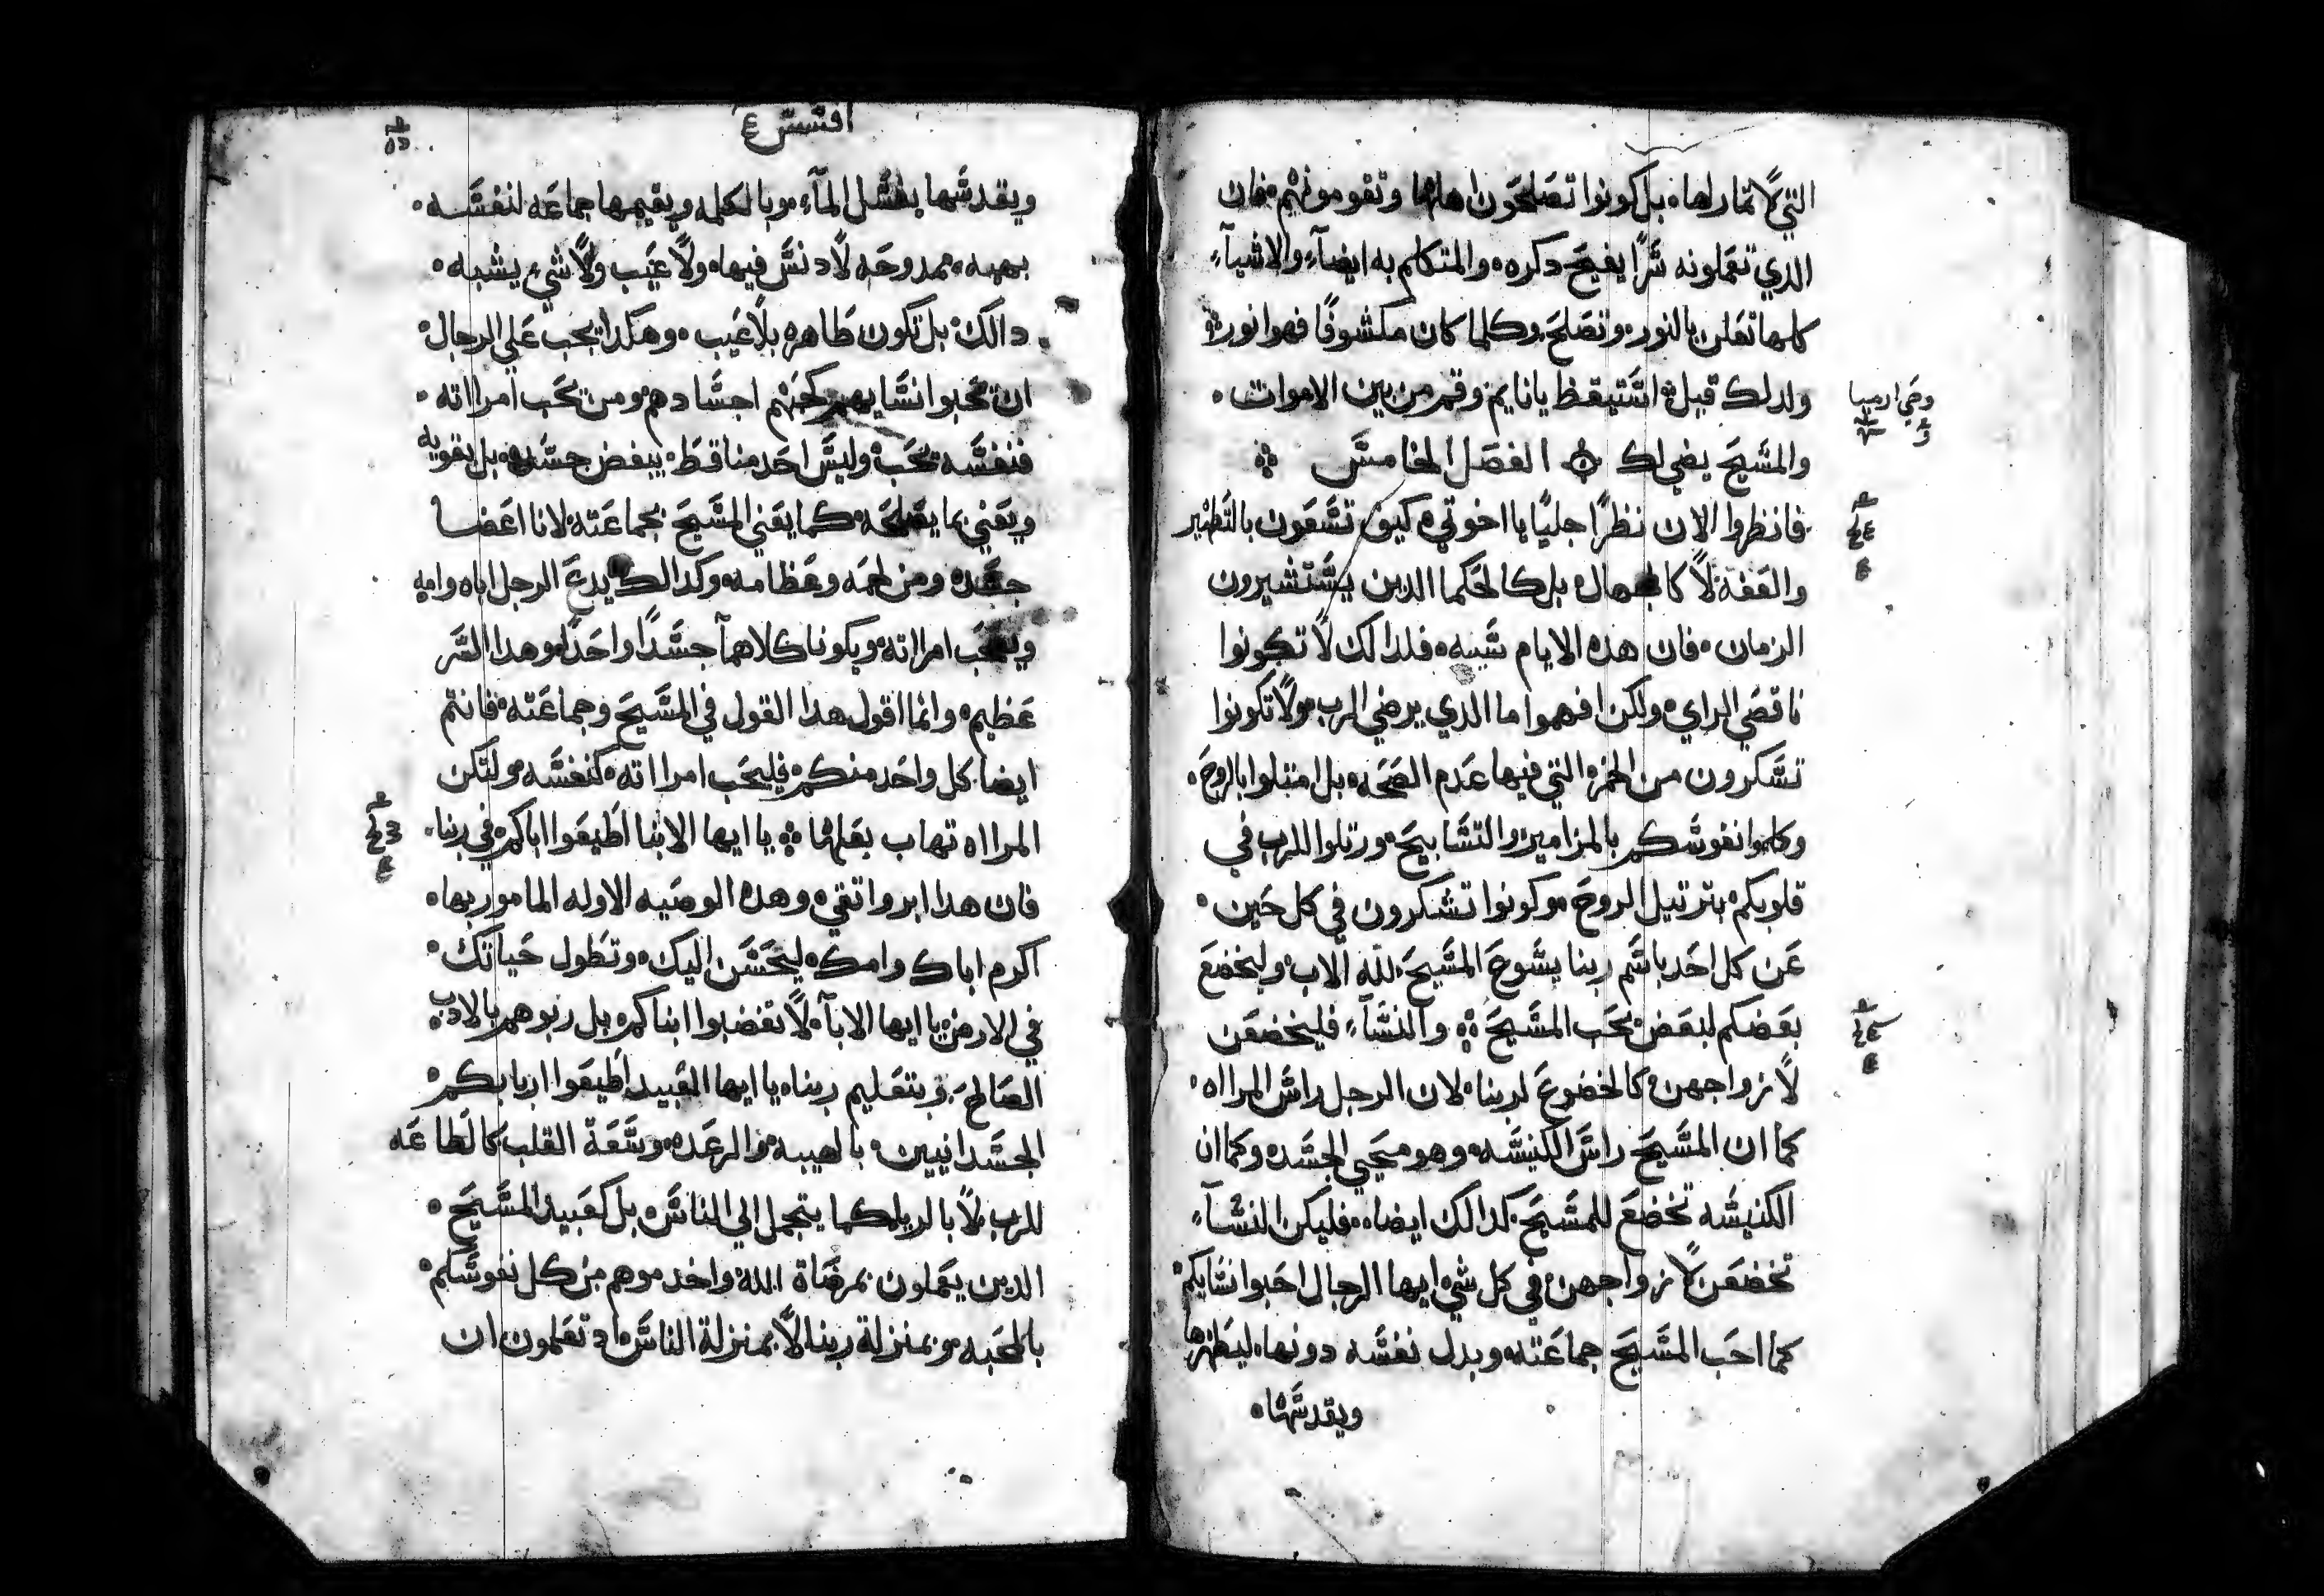 التي لا ثمار لها، بل كونوا تصلحون اهلها وتقومونهم، فان
الدي تعملونه سرًا يقبح دكره، والمتكلم به ايضآء والاشيآء
كلها تعلن بالنور، وتصلح، وكلما كان مكشوفًا فهوا نور
ولدلك قيل استيقظ يا نايم وقم من بين الاموات،
والمسيح يضي لك الفصل الخامس
فانظروا الان نظرًا جليًا يا اخوتي، كيف تسعون بالتطهير
والعفه، لا كالجهال، بل كالحكما الدين يستشيرون
الزمان، فان هده الايام شبيه، فلدالك لا تكونوا
ناقصي الراي، ولكن افهموا ما الدي يرضي الرب، ولا تكونوا
تسكرون من الخمر، التي فيها عدم الصحه، بل امتلوا بالروح،
وكلموا نفوسكم بالمزامير، والتسابيح، ورتلوا للرب في
قلوبكم بترتيل الروح، وكونوا تشكرون في كل حين،
عن كل احد باسم ربنا يسوع المسيح، لله الاب، وليخضع
بعضكم لبعض بحب المسيح، والنسآء فليخضعن
لازواجهن، كالخضوع لربنا، لان الرجل راس المرااه،
كما ان المسيح راس الكنيسه، وهو محيي الجسد، وكما ان
الكنيسه تخضع للمسيح، كدالك ايضا، فليكن النسآء
تخضعن لازواجهن في كل شي، ايها الرجال احبوا نسايكم،
كما احب المسيح جماعته، وبدل نفسه دونها، ليطهرها
ويقدسها،
وصي ارميا
افسس ٤
ويقدسها بغسل المآء، وبالكلمه، ويقيمها جماعه لنفسه،
بهيه، ممدوحه، لا دنس فيها، ولا عيب ولا شي يشبه،
دالك، بل تكون طاهره بلا عيب، وهكدا يجب علي الرجال،
ان تحبوا نسايهم كحبهم اجسادهم، ومن يحب امرااته،
فنفسه يحب، وليس احد منا قط، يبغض جسده، بل يقويه
ويعني بما يصلحه، كما يعني المسيح بجماعته، لانا اعضا
جسده ومن لحمه وعظامه، وكدالك يدع الرجل اباه وامه
ويحب امرااته، ويكونا كلاهمآ جسدًا واحدًا، وهدا السر
عظيم، وانما اقول هدا القول في المسيح وجماعته، فانتم
ايضا كل واحد منكم، فليحب امرااته، كنفسه، ولتكن
المرااه تهاب بعلها، يا ايها الابنا اطيعوا اباكم في ربنا،
فان هدا ابر واتقي، وهده الوصيه الاوله المامور بها،
اكرم اباك وامك، ليحسن اليك، وتطول حياتك،
في الارض، يا ايها الابآ، لا تغضبوا ابناكم، بل ربوهم بالادب
الصالح، وبتعليم ربنا، يا ايها العبيد اطيعوا اربابكم
الجسدانيين، بالهيبه، والرعده، وسعة القلب كالطاعه
للرب، لا بالريا، كما يتجمل الي الناس، بل كعبيد المسيح،
الدين يعملون بمرضاة الله، واخدموهم من كل نفوسكم،
بالمحبه، وبمنزلة ربنا لا بمنزلة الناس، اد تعلمون ان